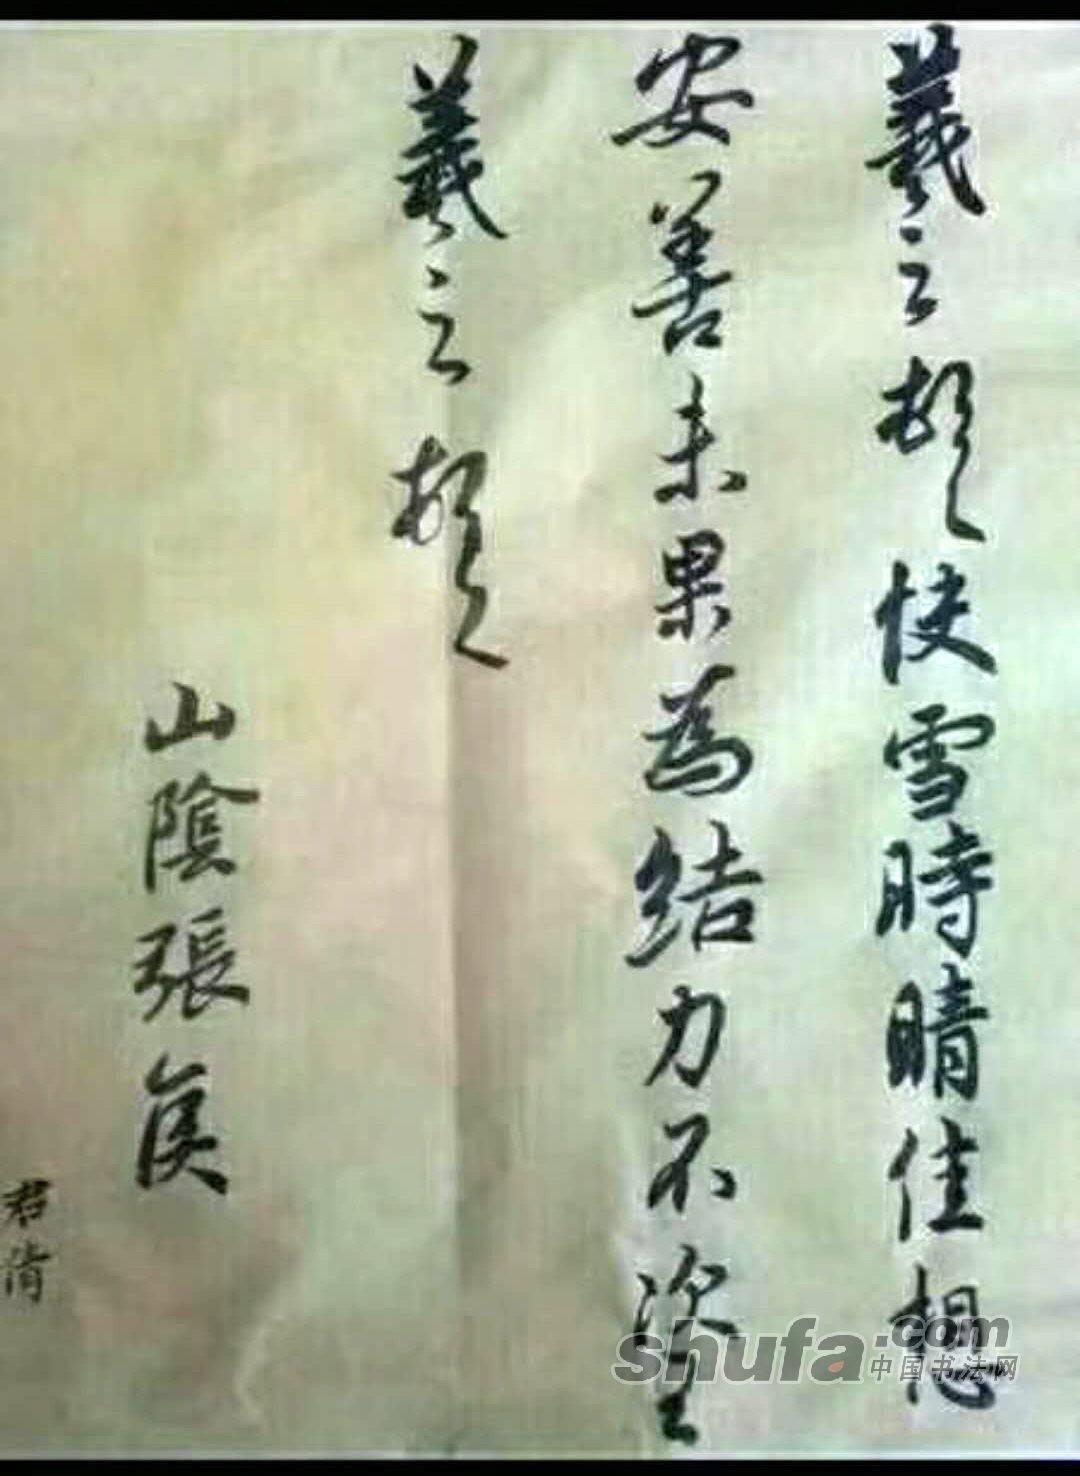 羲之頓首快雪時晴佳想
安善未果為結力不次王
羲之頓首
山陰張侯
君清
shufa.com
中国书法网